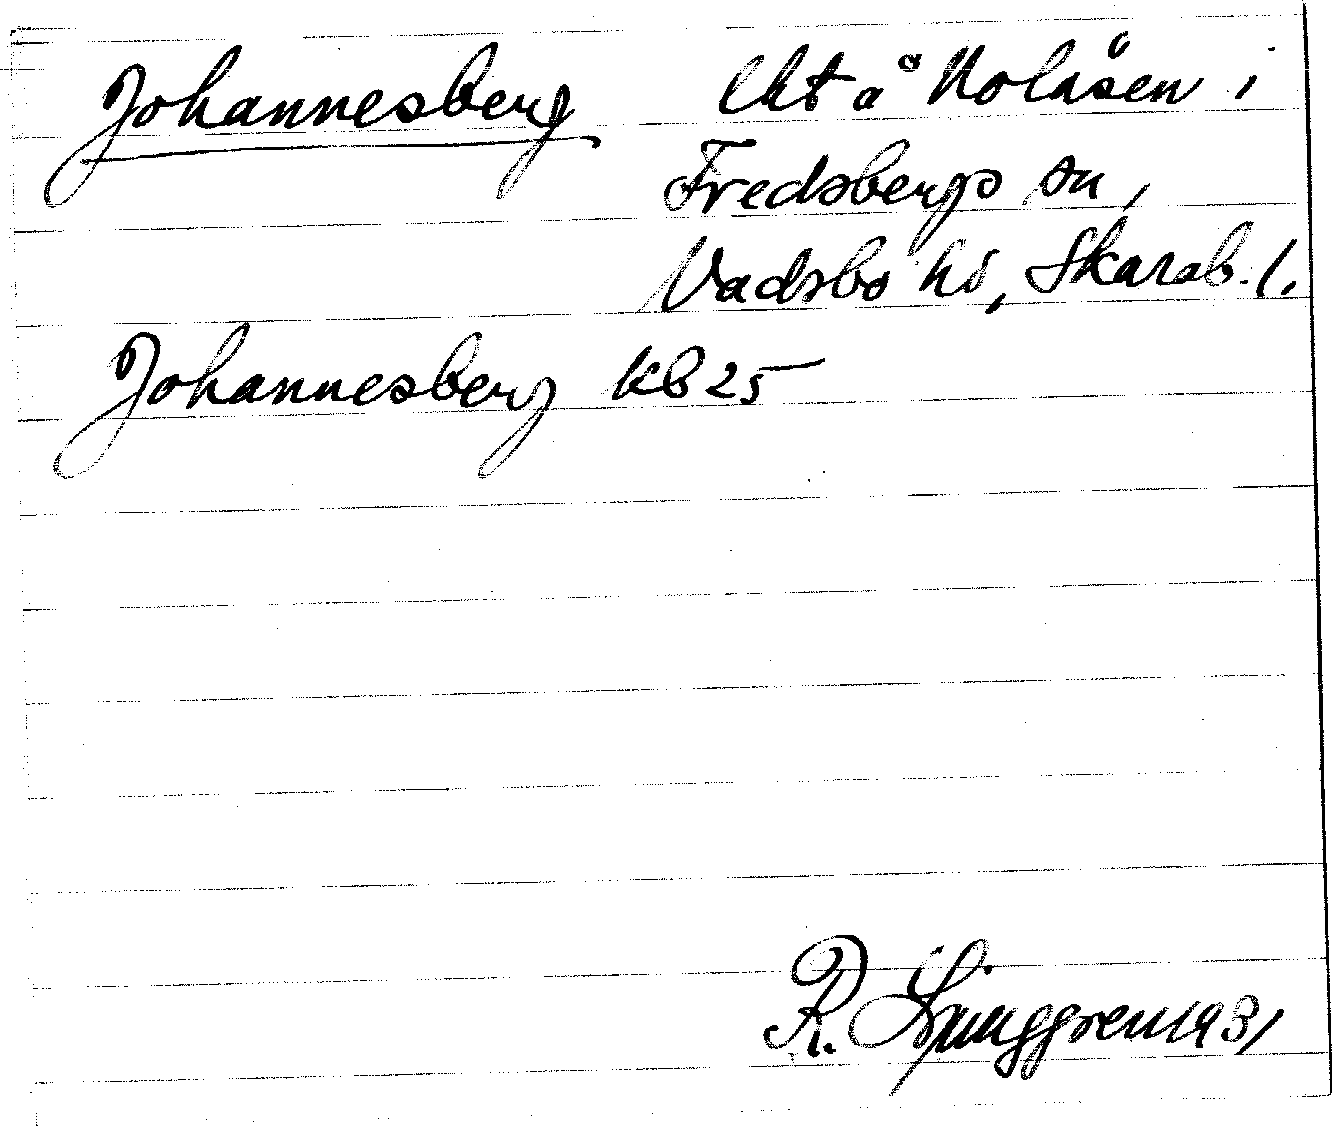 Johannesberg lht å Nolåsen i
Fredsbergs sn,
Vadsbo hd, Skarab. l.
Johannesberg KB 25
R. Ljunggren 1931